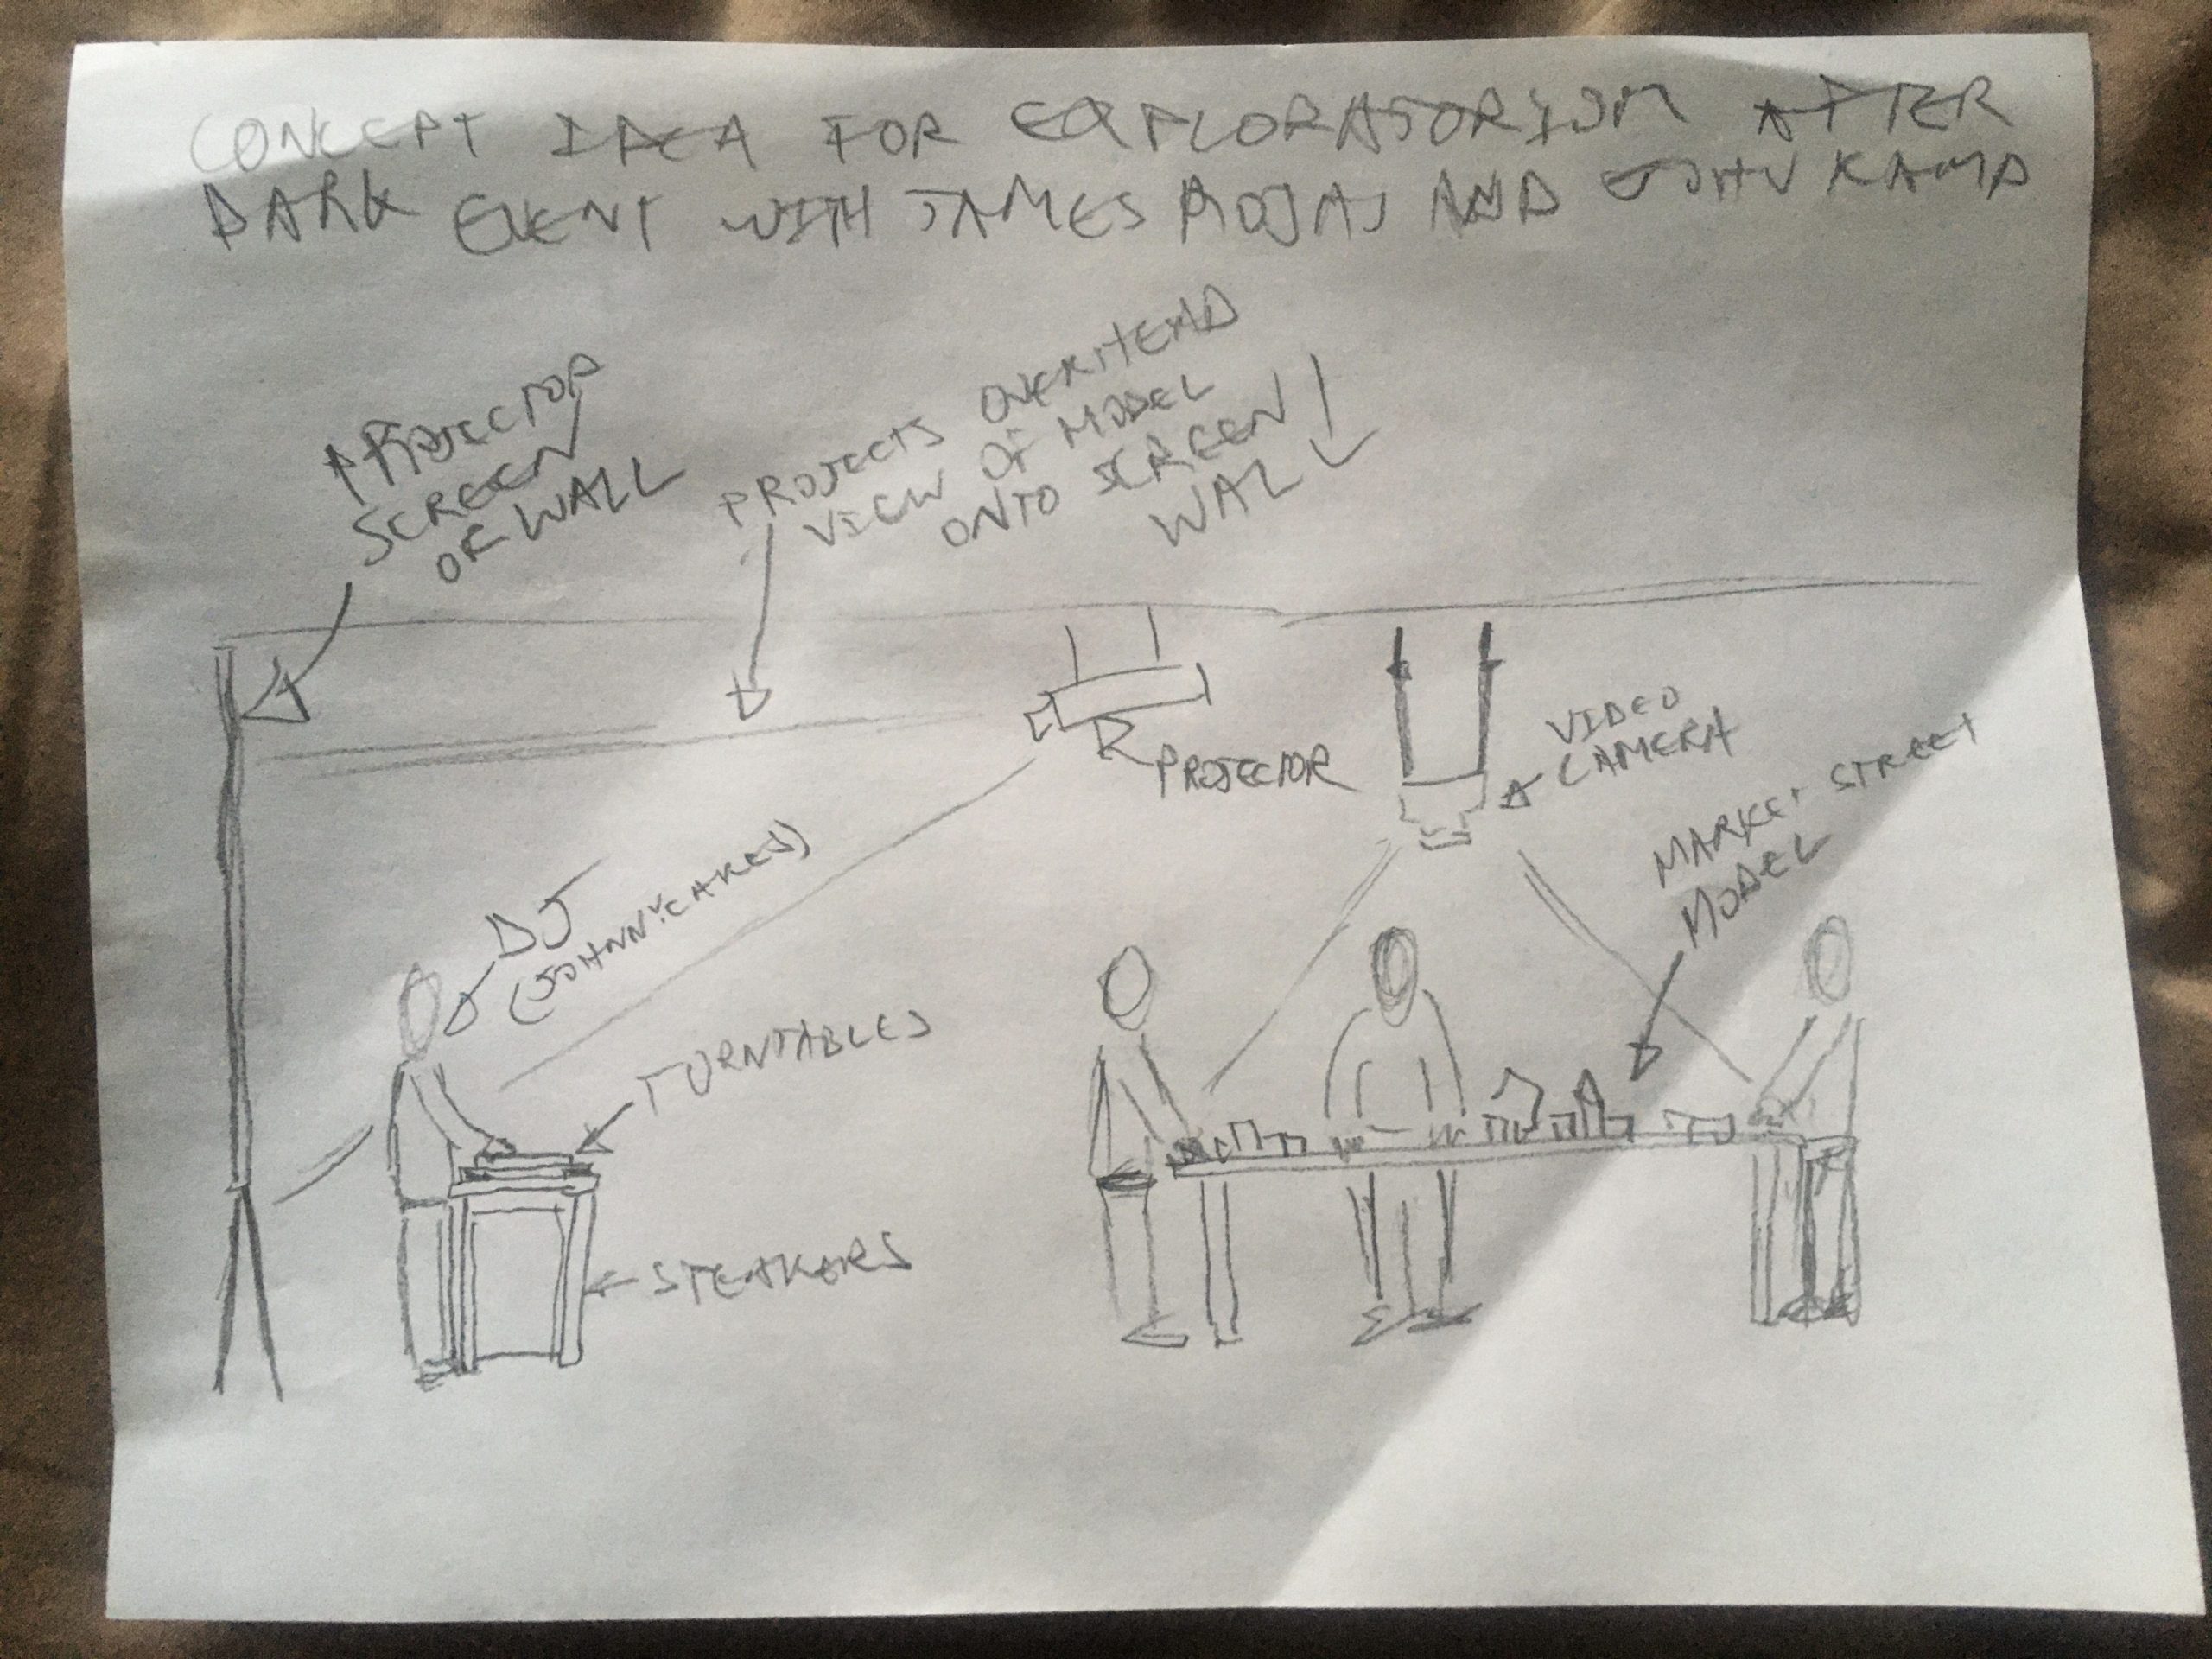 CONCEPT IDEA FOR EXPLORATORIUM AFTER
DARK EVENT WITH JAMES ROJAS AND JOHN KAMP
PROJECTOR
SCREEN
OR WALL
PROJECTS OVERHEAD
VIEW OF MODEL
ONTO SCREEN/
WALL
PROJECTOR
VIDEO
CAMERA
MARKET STREET
MODEL
DJ
(JOHNNYCAKES)
TURNTABLES
SPEAKERS